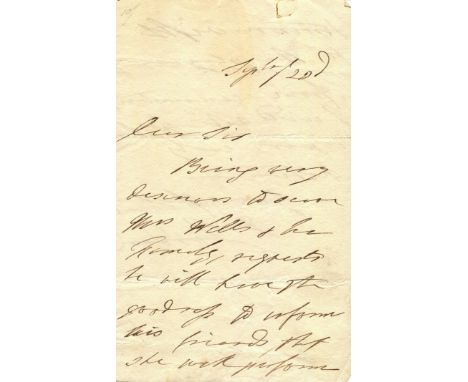 Dear Sir
Being very
desirous to serve
Mrs Wells & her
Family, requests
he will have the
goodness to inform
his friends, that
she will perform